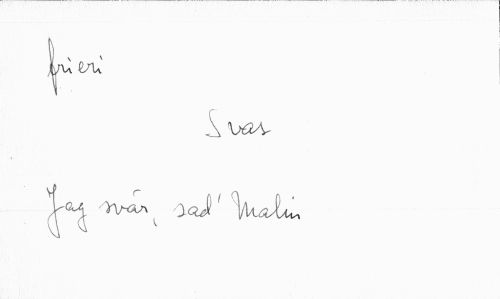 frieri
Svar
Jag svär, sad' Malin